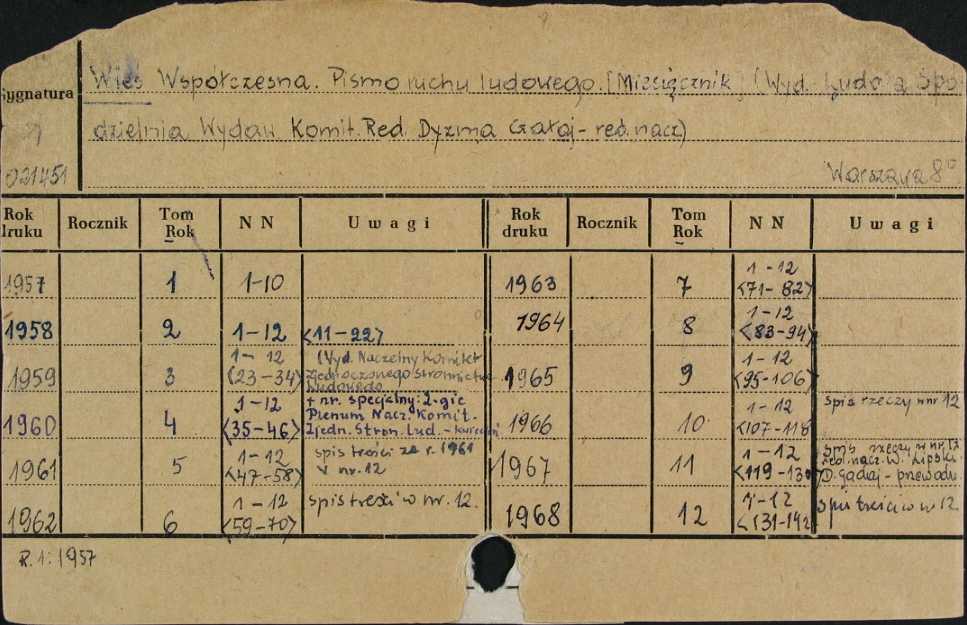 Wieś Współczesna. Pismo ruchu ludowego. [Miesięcznik] (Wyd. Ludowa Spół-
Sygnatura
dzielnia Wydaw. Komit. Red. Dyzma Gałaj - red. nacz)
021451
Warszawa 8°
Rok druku Rocznik Tom Rok NN Uwagi Rok druku Rocznik Tom Rok NN Uwagi
1957 1 1-10
1963 7 1-12 <71-82>
1958 2 1-12 <11-22>
1964 8 1-12 <83-94>
1959 3 1-12 <23-34> (Wyd. Naczelny Komitet
Zjednoczonego Stronnictwa
Ludowego
1965 9 1-12 <95-106>
1960 4 1-12 <35-46> + nr. specjalny: 2-gie
Plenum Nacz. Komit.
Zjedn. Stron. Lud. - kwiecień
1966 10 1-12 <107-118> spis rzeczy w nr 12
1961 5 1-12 <47-58> spis treści za r. 1961
w nr. 12
1967 11 1-12 <119-130> spis rzeczy w nr. 12
red. nacz. W. Lipski.
D. Gałaj - przewodn.
1962 6 1-12 <59-70> spis treści w nr. 12.
1968 12 1-12 <131-142 Spis treści w 12.
R. 1: 1957